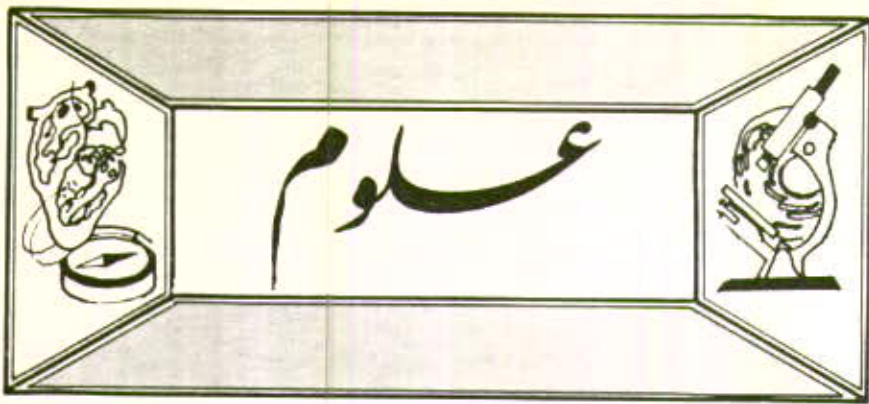 علوم